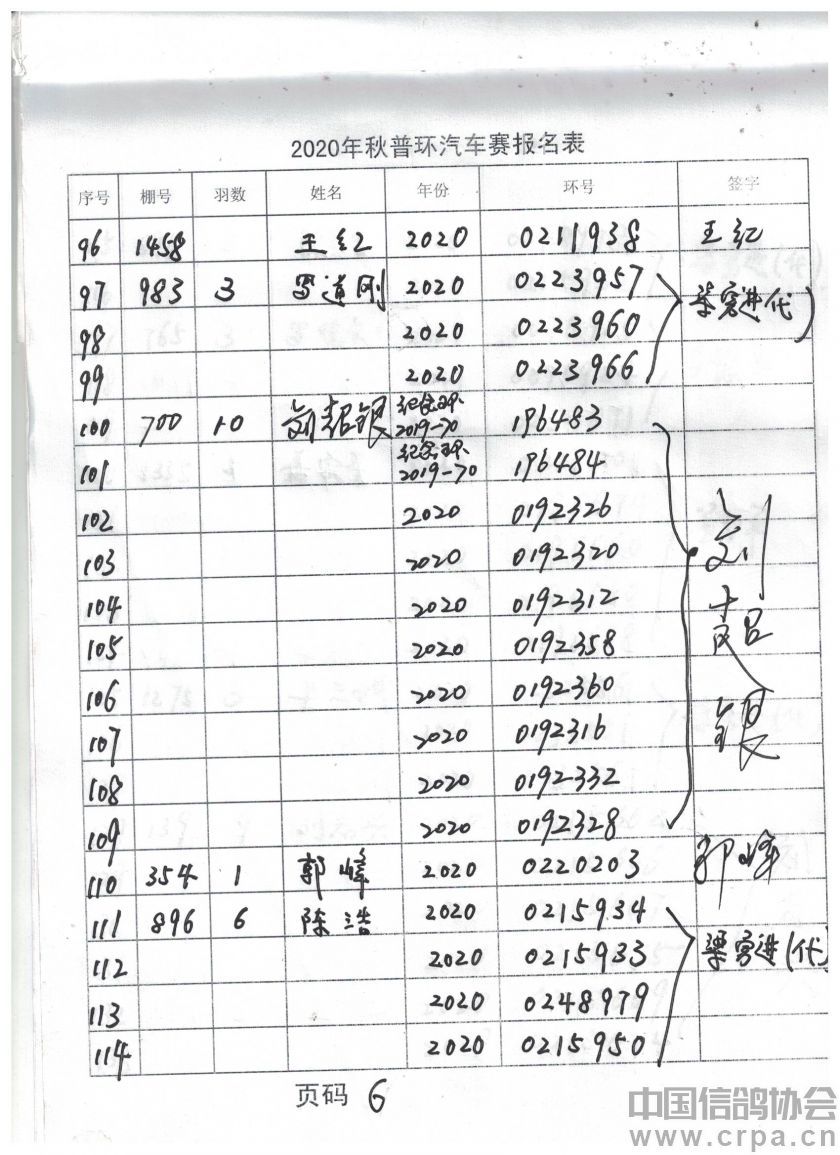 2020年秋普环汽车赛报名表
序号 棚号 羽数 姓名 年份 环号 签字
96 1458 王红 2020 0211938 王红
97 983 3 罗道刚 2020 0223957 梁宽进(代)
98 2020 0223960
99 2020 0223966
100 700 10 刘超银 纪念环 2019-70 196483
101 纪念环 2019-70 196484
102 2020 0192326 刘超银
103 2020 0192320
104 2020 0192312
105 2020 0192358
106 2020 0192360
107 2020 0192316
108 2020 0192332
109 2020 0192328
110 354 1 郭峰 2020 0220203 郭峰
111 896 6 陈浩 2020 0215934
112 2020 0215933 梁宽进(代)
113 2020 0248979
114 2020 0215950
页码 6
中国信鸽协会
www.crpa.cn